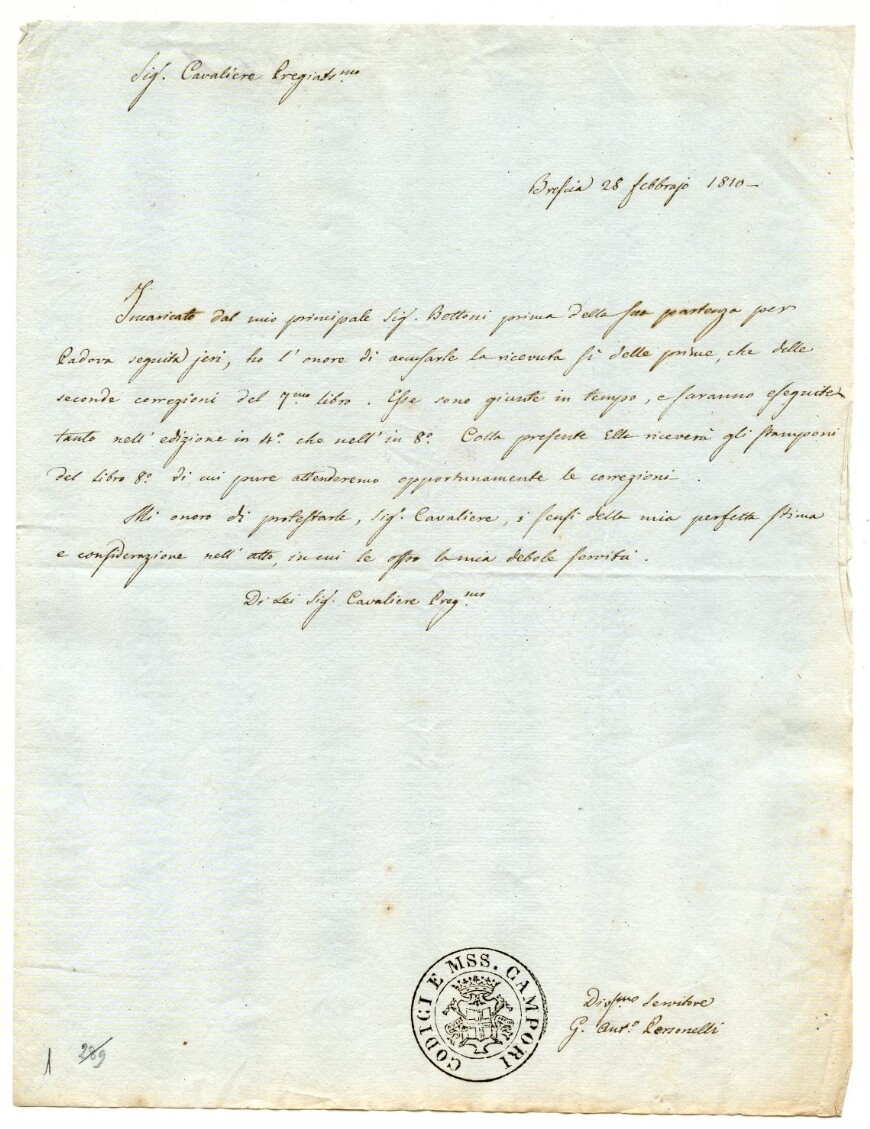 Sig. Cavaliere Pregiats.mo
Brescia 28 febbrajo 1810 –
Incaricato dal mio principale Sig. Bettoni prima della sua partenza per
Padova seguita jeri, ho l'onore di accusarle la ricevuta sì delle prime, che delle
seconde correzioni del 7.mo libro. Esse sono giunte in tempo, e saranno eseguite
tanto nell'edizione in 4.º che nell'in 8.º Colla presente Ella riceverà gli stamponi
del libro 8.º di cui pure attenderemo opportunamente le correzioni.
Mi onoro di protestarle, Sig. Cavaliere, i sensi della mia perfetta stima
e considerazione nell'atto, in cui le offro la mia debole servitù.
Di Lei Sig. Cavaliere Preg.mo
CODICI E MSS. CAMPORI
Divs.mo Servitore
G. Ant.º Personelli
1 289